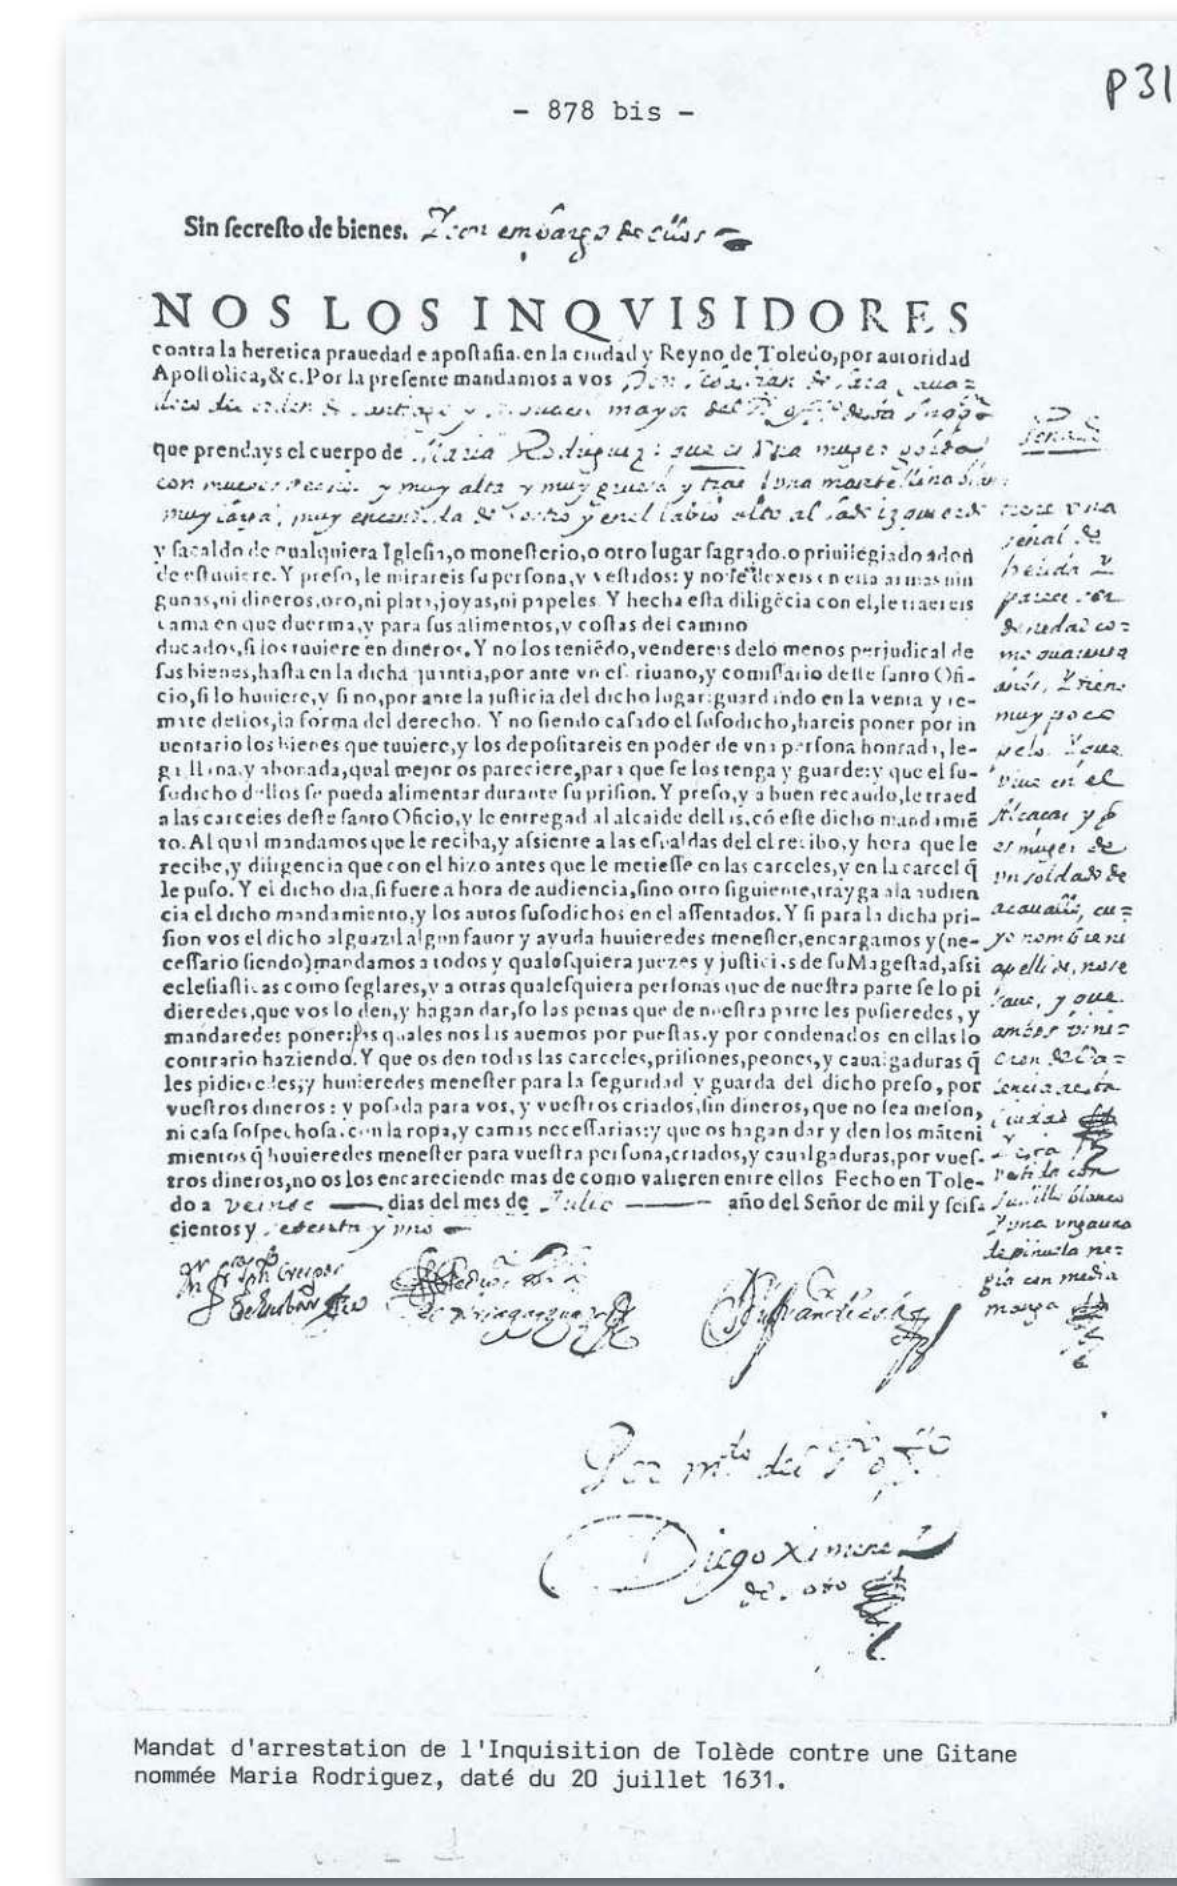 P31
- 878 bis -
Sin secresto de bienes. Y con embargo de ellos
NOS LOS INQVISIDORES
contra la heretica prauedad e apostasia. en la ciudad y Reyno de Toledo, por autoridad
Apostolica, &c. Por la presente mandamos a vos Don
orden de santiago y mayor del
que prendays el cuerpo de Maria Rodriguez: que es Vna muger gorda
con y muy alta y muy gruesa y trae Vna mantellina
muy larga, muy encendida de rostro y en el labio alto al lado izquierdo tiene vna
señal de
herida Y
parece ser
de hedad co=
mo quarenta
años, Y tiene
muy poco
pelo. Y que
viue en el
Alcacar y
es muger de
vn soldado de
acauallo, cu=
yo nombre ni
apellido, no se
saue, y que
ambos vini=
eron de Va=
lencia a esta
ciudad
con
blanco
Y vna
ne=
gra con media
manga
y sacaldo de qualquiera Iglesia, o monesterio, o otro lugar sagrado. o priuilegiado adon
de estuuiere. Y preso, le mirareis su persona, y vestidos: y no se dexeis en ella armas nin
gunas, ni dineros, oro, ni plata, joyas, ni papeles Y hecha esta diligēcia con el, le traereis
cama en que duerma, y para sus alimentos, y costas del camino
ducados, si los tuuiere en dineros. Y no los teniēdo, vendereis delo menos perjudical de
sus bienes, hasta en la dicha quintia, por ante vn escriuano, y comissario deste santo Ofi-
cio, si lo huuiere, y si no, por ante la justicia del dicho lugar: guardando en la venta y re-
mate dellos, la forma del derecho. Y no siendo casado el susodicho, hareis poner por in
uentario los bienes que tuuiere, y los depositareis en poder de vna persona honrada, le-
ga llana, y abonada, qual mejor os pareciere, para que se los tenga y guarde: y que el su-
sodicho dellos se pueda alimentar durante su prision. Y preso, y a buen recaudo, le traed
a las carceles deste santo Oficio, y le entregad al alcaide dellas, cō este dicho mandamiē
to. Al qual mandamos que le reciba, y assiente a las espaldas del el recibo, y hora que le
recibe, y diligencia que con el hizo antes que le metiesse en las carceles, y en la carcel q̄
le puso. Y el dicho dia, si fuere a hora de audiencia, sino otro siguiente, trayga ala audien
cia el dicho mandamiento, y los autos susodichos en el assentados. Y si para la dicha pri-
sion vos el dicho alguazil algun fauor y ayuda huuieredes menester, encargamos y (ne-
cessario siendo) mandamos a todos y qualesquiera juezes y justicias de su Magestad, assi
eclesiasticas como seglares, y a otras qualesquiera personas que de nuestra parte se lo pi
dieredes, que vos lo den, y hagan dar, so las penas que de nuestra parte les pusieredes, y
mandaredes poner: las quales nos las auemos por puestas. y por condenados en ellas lo
contrario haziendo. Y que os den todas las carceles, prisiones, peones, y caualgaduras q̄
les pidieredes, y huuieredes menester para la seguridad y guarda del dicho preso, por
vuestros dineros: y posada para vos, y vuestros criados, sin dineros, que no sea meson,
ni casa sospechosa. con la ropa, y camas necessarias: y que os hagan dar y den los māteni
mientos q̄ houieredes menester para vuestra persona, criados, y caualgaduras, por vues-
tros dineros, no os los encareciendo mas de como valieren entre ellos Fecho en Tole-
do a veinte dias del mes de Julio año del Señor de mil y seis-
cientos y y uno
Por m.to del
Diego Ximenez
Mandat d'arrestation de l'Inquisition de Tolède contre une Gitane
nommée Maria Rodriguez, daté du 20 juillet 1631.